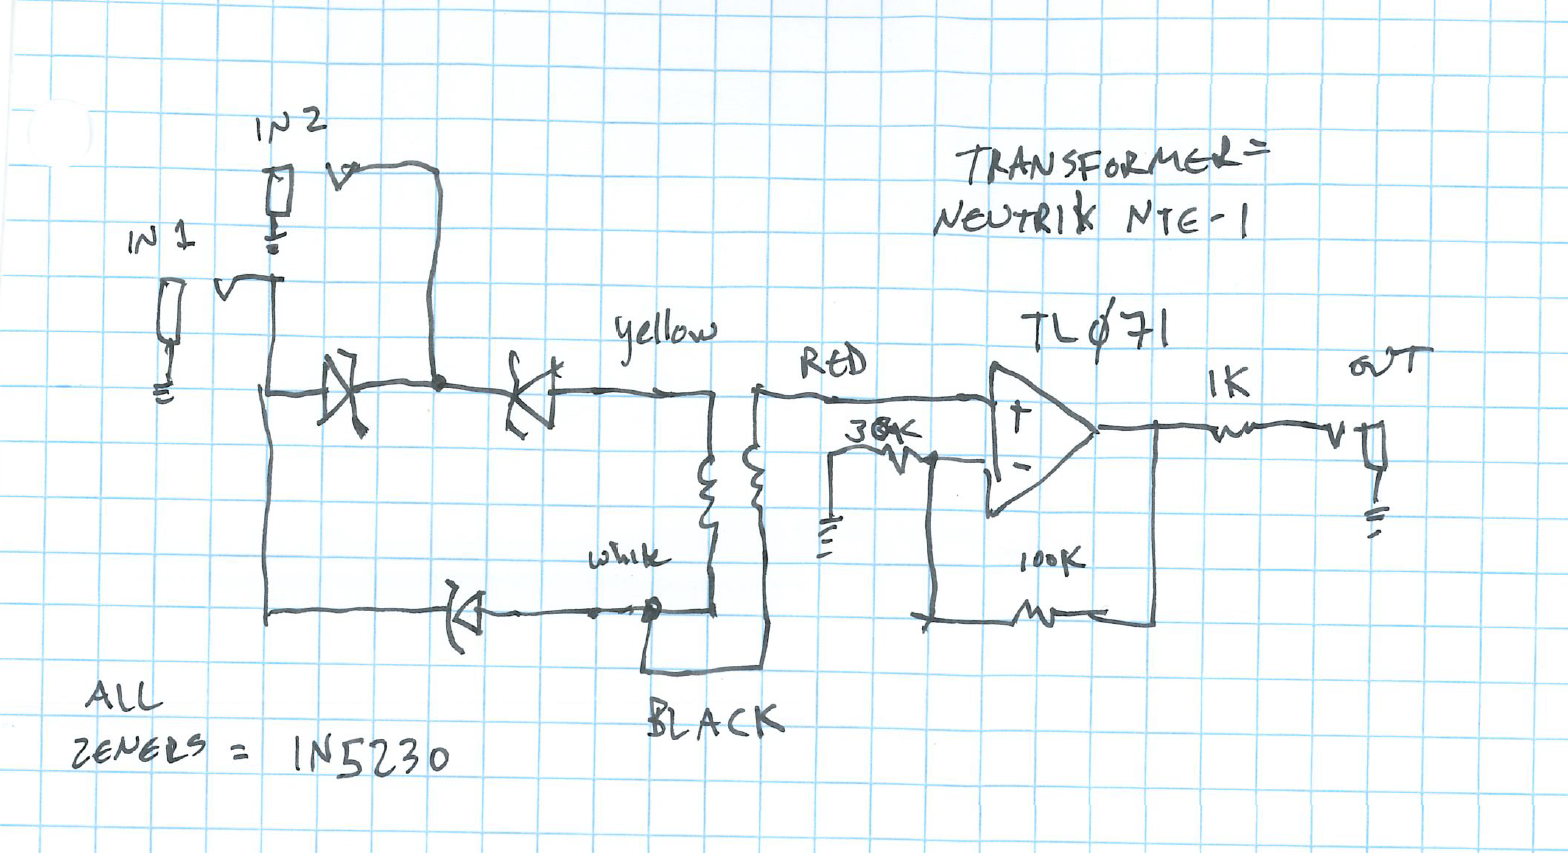 IN 2
IN 1
TRANSFORMER=
NEUTRIK NTE-1
yellow
RED
TLØ71
1K
OUT
+
-
white
100K
BLACK
ALL
ZENERS = 1N5230